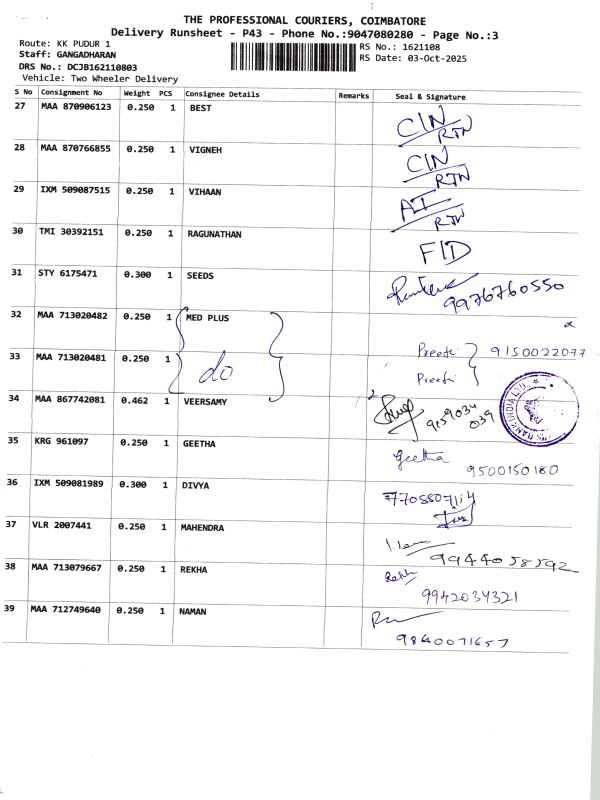 THE PROFESSIONAL COURIERS, COIMBATORE
Delivery Runsheet - P43 - Phone No.:9047080280 - Page No.:3
Route: KK PUDUR 1
RS No.: 1621108
Staff: GANGADHARAN
RS Date: 03-Oct-2025
DRS No.: DCJB162110803
Vehicle: Two Wheeler Delivery
S No Consignment No Weight PCS Consignee Details Remarks Seal & Signature
27 MAA 870906123 0.250 1 BEST CIN/RTN
28 MAA 870766855 0.250 1 VIGNEH CIN/RTN
29 IXM 509087515 0.250 1 VIHAAN AI/RTN
30 TMI 30392151 0.250 1 RAGUNATHAN FID
31 STY 6175471 0.300 1 SEEDS 9976760550
32 MAA 713020482 0.250 1 MED PLUS Preethi 9150022077
33 MAA 713020481 0.250 1 do Preethi
34 MAA 867742081 0.462 1 VEERSAMY 9159034039
BANK INDIA LTD.
35 KRG 961097 0.250 1 GEETHA geetha 9500150180
36 IXM 509081989 0.300 1 DIVYA 7708807114
37 VLR 2007441 0.250 1 MAHENDRA 9944058592
38 MAA 713079667 0.250 1 REKHA Rekha 9942034321
39 MAA 712749640 0.250 1 NAMAN 9840071657